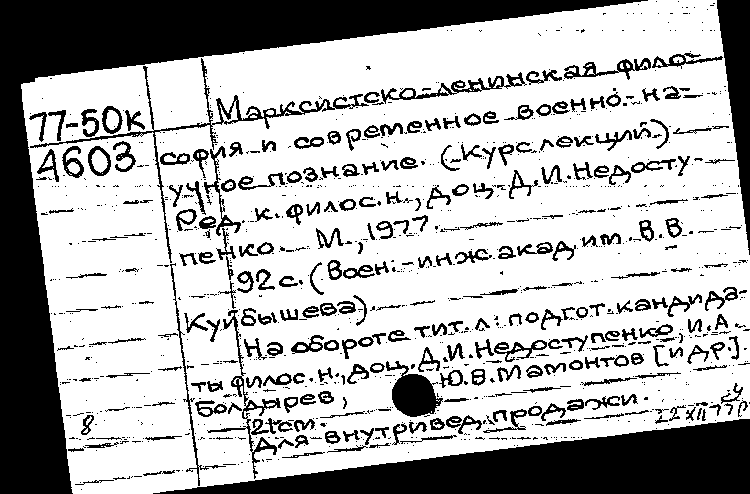 77-50к
4603
Марксистско-ленинская фило-
софия и современное военно-на-
учное познание. (Курс лекций).
Ред. к. филос. н., доц. Д.И. Недосту-
пенко. М., 1977.
92 с. (Воен.-инж. акад. им. В.В.
Куйбышева).
На обороте тит. л.: подгот. кандида-
ты филос. н., доц. Д.И. Недоступенко, И.А.
Болдырев, Ю.В. Мамонтов [и др.].
21 см.
Для внутривед. продажи.
8
22 XII 77